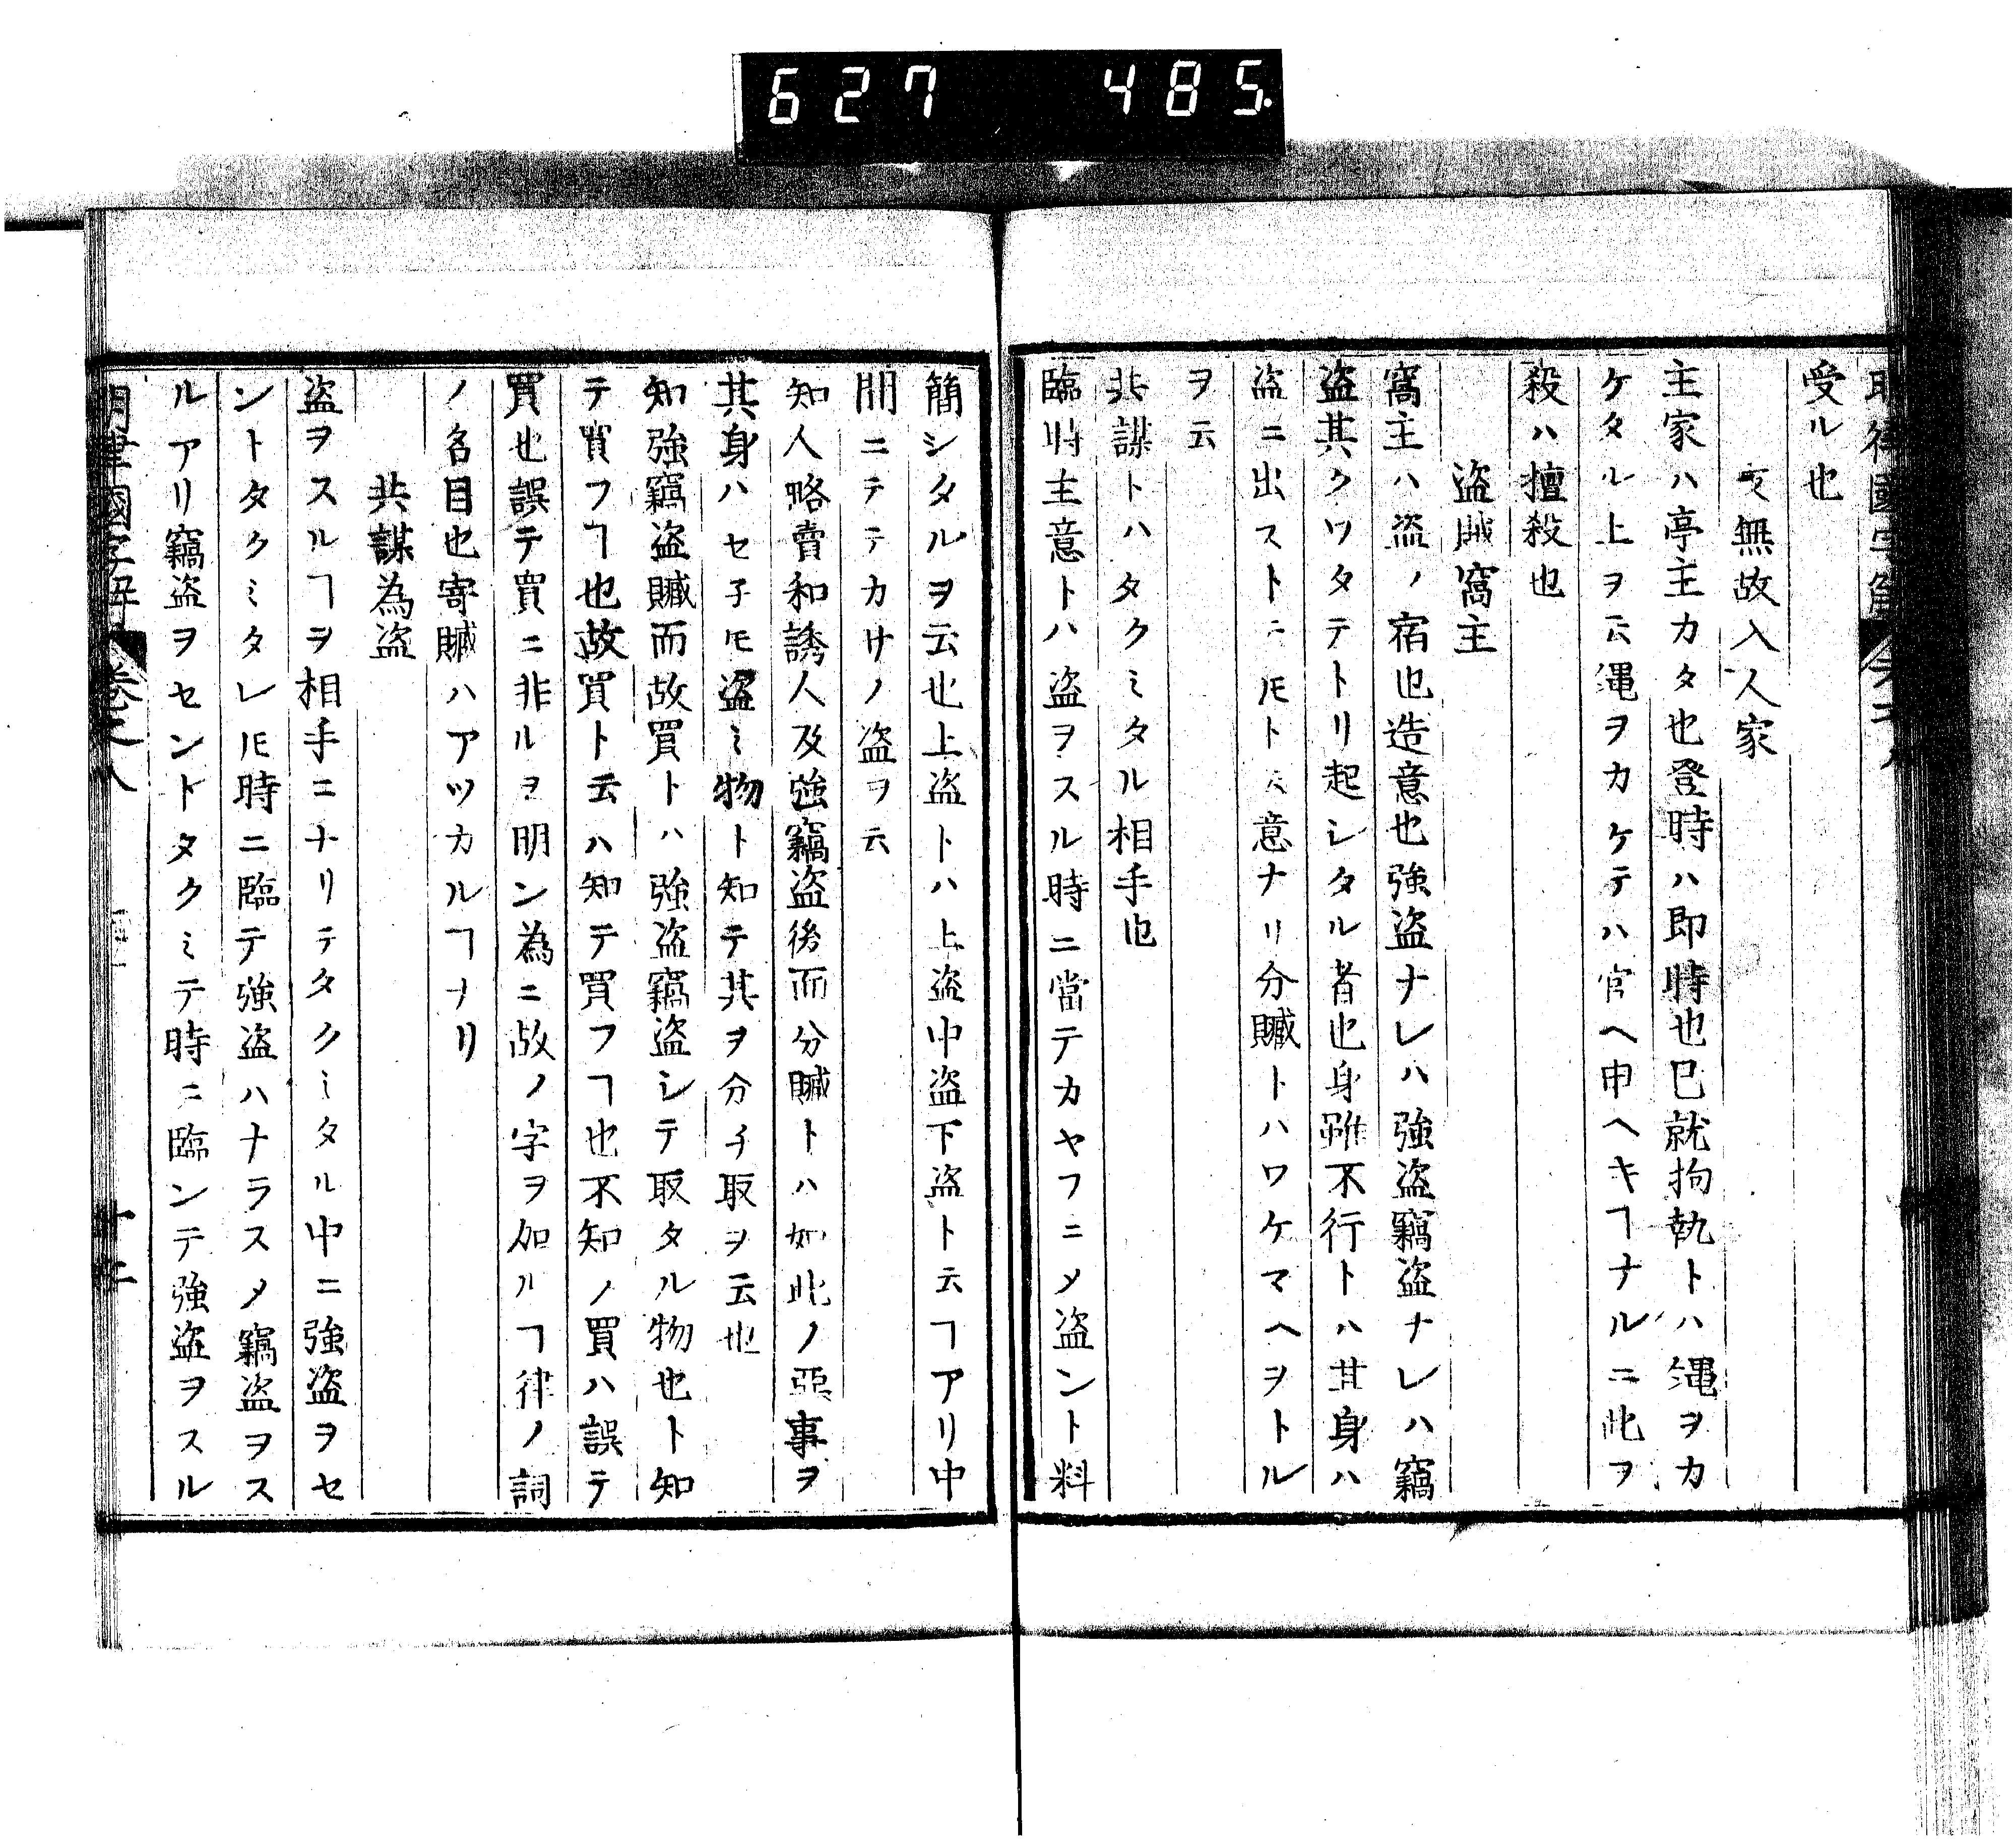 627 485.
受ル也
夜無故入人家
主家ハ亭主カタ也登時ハ即時也已就拘執トハ縄ヲカ
ケタル上ヲ云縄ヲカケテハ官ヘ申ヘキヿナルニ此ヲ
殺ハ擅殺也
盗賊窩主
窩主ハ盗ノ宿也造意也強盗ナレハ強盗竊盗ナレハ竊
盗其クワタテトリ起シタル者也身雖不行トハ其身ハ
盗ニ出ストニㇺトス意ナリ分贓トハワケマヘヲトル
ヲ云
共謀トハタクミタル相手也
臨時主意トハ盗ヲスル時ニ當テカヤフニメ盗ント料
簡シタルヲ云也上盗トハ上盗中盗下盗ト云ヿアリ中
間ニテテカサノ盗ヲ云
知人略賣和誘人及強竊盗後而分贓トハ如此ノ惡事ヲ
其身ハセ子𪜈盗ミ物ト知テ其ヲ分チ取ヲ云也
知強竊盗贓而故買トハ強盗竊盗シテ取タル物也ト知
テ買フヿ也故買ト云ハ知テ買フヿ也不知ノ買ハ誤テ
買也誤テ買ニ非ルヲ明ン為ニ故ノ字ヲ加ルヿ律ノ詞
ノ名目也寄贓ハアツカルヿナリ
共謀為盗
盗ヲスルヿヲ相手ニナリテタクミタル中ニ強盗ヲセ
ントタクミタレ𪜈時ニ臨テ強盗ハナラスメ竊盗ヲス
ルアリ竊盗ヲセントタクミテ時ニ臨ンテ強盗ヲスル
明律國字解 巻之八 十二